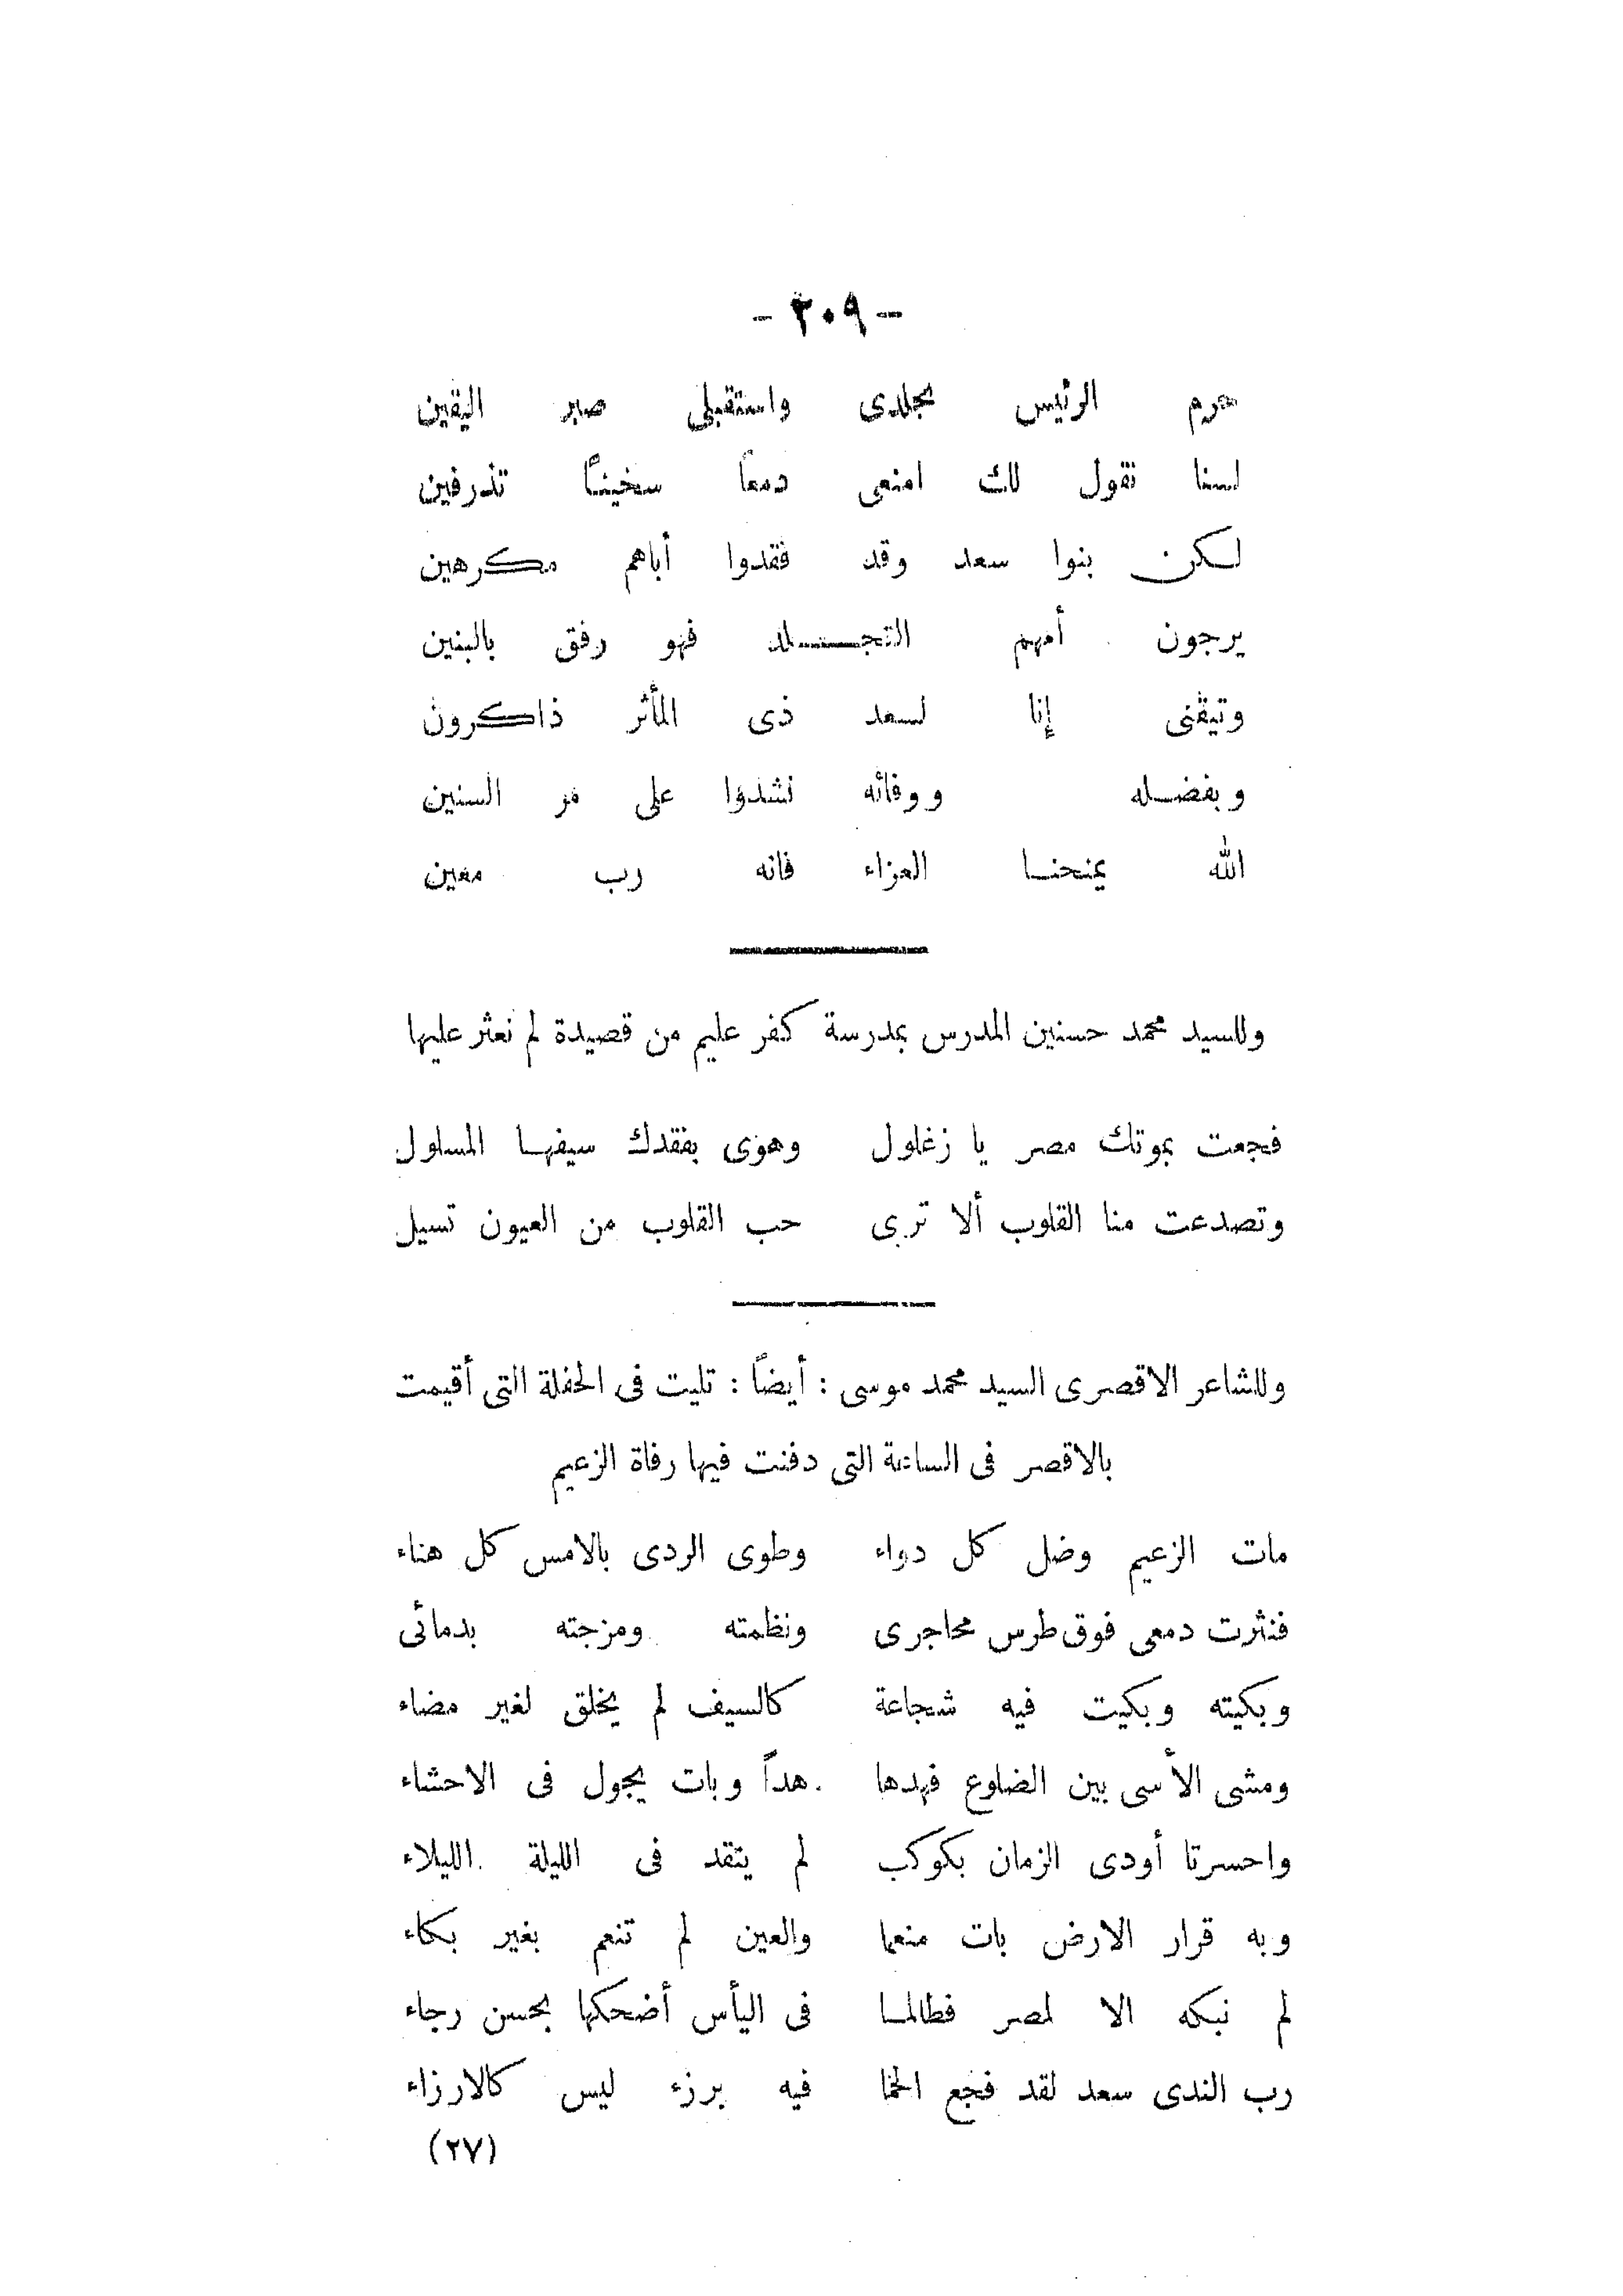 - ٢٠٩ -
حرم الرئيس تجلدى واستقبلى صبر اليقين
لسنا نقول لك امنعى دمعاً سخيناً تذرفين
لكن بنوا سعد وقد فقدوا أباهم مكرهين
يرجون أمهم التجلد فهو رفق بالبنين
وتيقنى إنا لسعد ذى المأثر ذاكرون
وبفضله ووفائه نشدوا على مر السنين
الله يمنحنا العزاء فانه رب معين
وللسيد محمد حسنين المدرس بمدرسة كفر عليم من قصيدة لم نعثر عليها
فجعت بموتك مصر يا زغلول وهوى بفقدك سيفها المسلول
وتصدعت منا القلوب ألا ترى حب القلوب من العيون تسيل
وللشاعر الاقصرى السيد محمد موسى : أيضاً : تليت فى الحفلة التى أقيمت
بالاقصر فى الساعة التى دفنت فيها رفاة الزعيم
مات الزعيم وضل كل دواء وطوى الردى بالامس كل هناء
فنثرت دمعى فوق طرس محاجرى ونظمته ومزجته بدمائى
وبكيته وبكيت فيه شجاعة كالسيف لم يخلق لغير مضاء
ومشى الأسى بين الضلوع فهدها هداً وبات يجول فى الاحشاء
واحسرتا أودى الزمان بكوكب لم يتقد فى الليلة الليلاء
وبه قرار الارض بات منعما والعين لم تنعم بغير بكاء
لم نبكه الا لمصر فطالما فى اليأس أضحكها بحسن رجاء
رب الندى سعد لقد فجع الحما فيه برزء ليس كالارزاء
(٢٧)